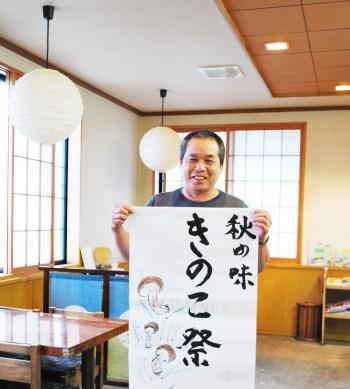 秋の味
きのこ祭